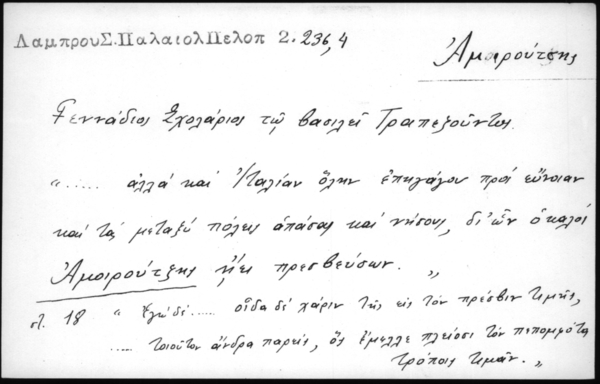 ΛαμπρουΣ.ΠαλαιολΠελοπ 2. 236,4
Ἀμοιρούτζης
Γεννάδιος Σχολάριος τῷ βασιλεῖ Τραπεζοῦντος.
"..... ἀλλά καί Ἰταλίαν ὅλην ἐπηγάγου πρός εὔνοιαν
καί τάς μεταξύ πόλεις ἁπάσας καί νήσους, δι' ὧν ὁ καλός
Ἀμοιρούτζης ᾔει πρεσβεύσων. "
στ. 18 " Ἐγώ δέ ..... οἶδα δέ χάριν τῆς εἰς τόν πρέσβιν τιμῆς,
... τοιοῦτον ἄνδρα παρείς, ὅς ἔμελλε πλείοσι τόν πεπομφότα
τρόποις τιμᾶν. "